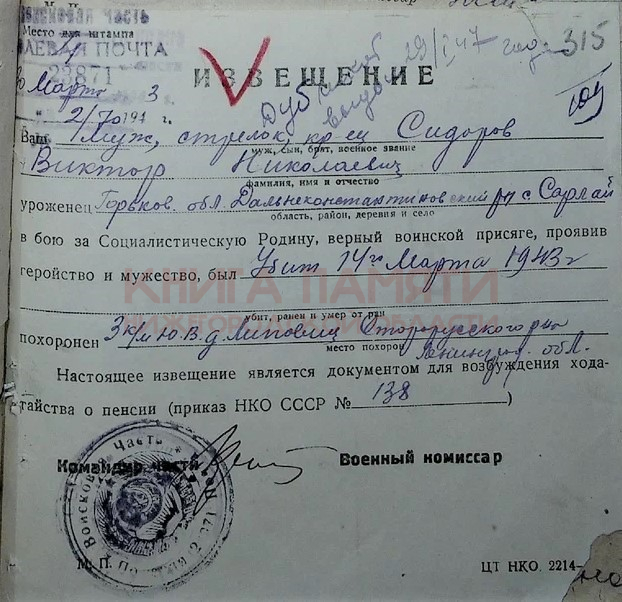 Войсковая часть
Место для штампа
ПОЛЕВАЯ ПОЧТА
23871
Марта 3
2/70 194 г.
315
ИЗВЕЩЕНИЕ
Дубликат
выдан 29/I 47 года
Ваш муж, стрелок кр-ец Сидоров
муж, сын, брат, военное звание
Виктор Николаевич
фамилия, имя и отчество
уроженец Горьков. обл. Дальнеконстантиновский р-н с. Сарлай
область, район, деревня и село
в бою за Социалистическую Родину, верный воинской присяге, проявив
геройство и мужество, был Убит 14го Марта 1943 г
КНИГА ПАМЯТИ
НИЖЕГОРОДСКОЙ ОБЛАСТИ
убит, ранен и умер от ран
похоронен 3 км Ю.В. д Липовиц Старорусского р-на
место похорон Ленинград. обл.
Настоящее извещение является документом для возбуждения хода-
тайства о пенсии (приказ НКО СССР № 138)
Командир части
Военный комиссар
Войсковая Часть
М. П.
ЦТ НКО. 2214-